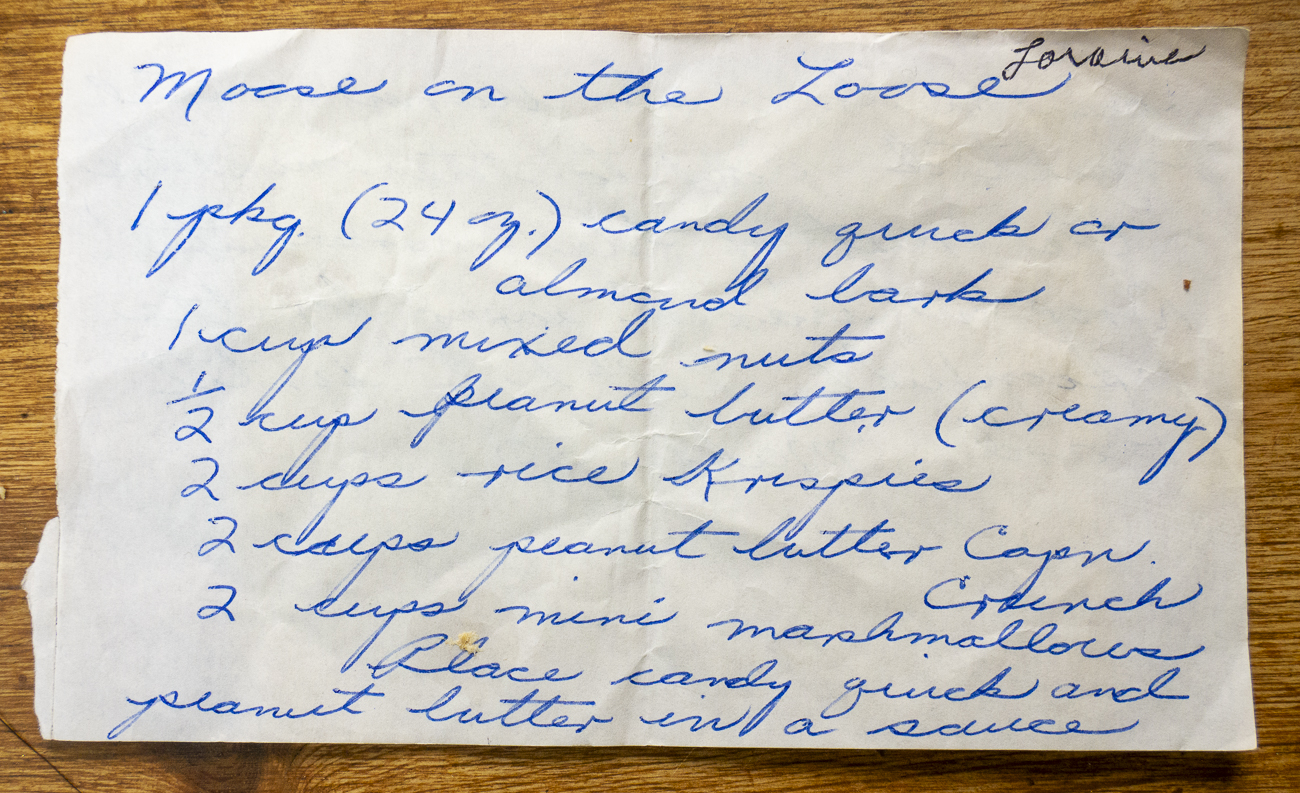 Loraine
Moose on the Loose
1 pkg. (24 oz.) candy quick or
almond bark
1 cup mixed nuts
1/2 cup peanut butter (creamy)
2 cups rice Krispies
2 cups peanut butter Capn.
Crunch
2 cups mini marshmallows
Place candy quick and
peanut butter in a sauce